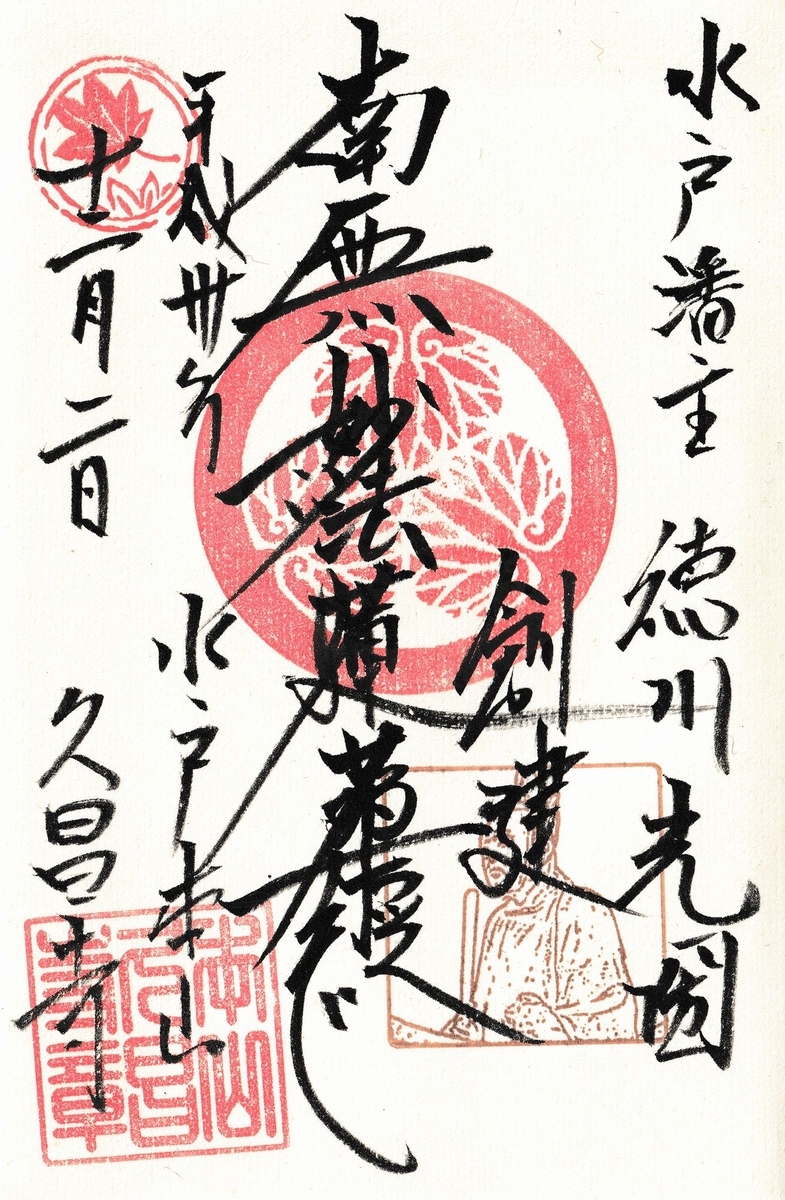 水戸藩主 徳川光圀
創建
南無妙法蓮華経
平成卅年
十二月二日
水戸本山
久昌寺
本山
久昌
寺章